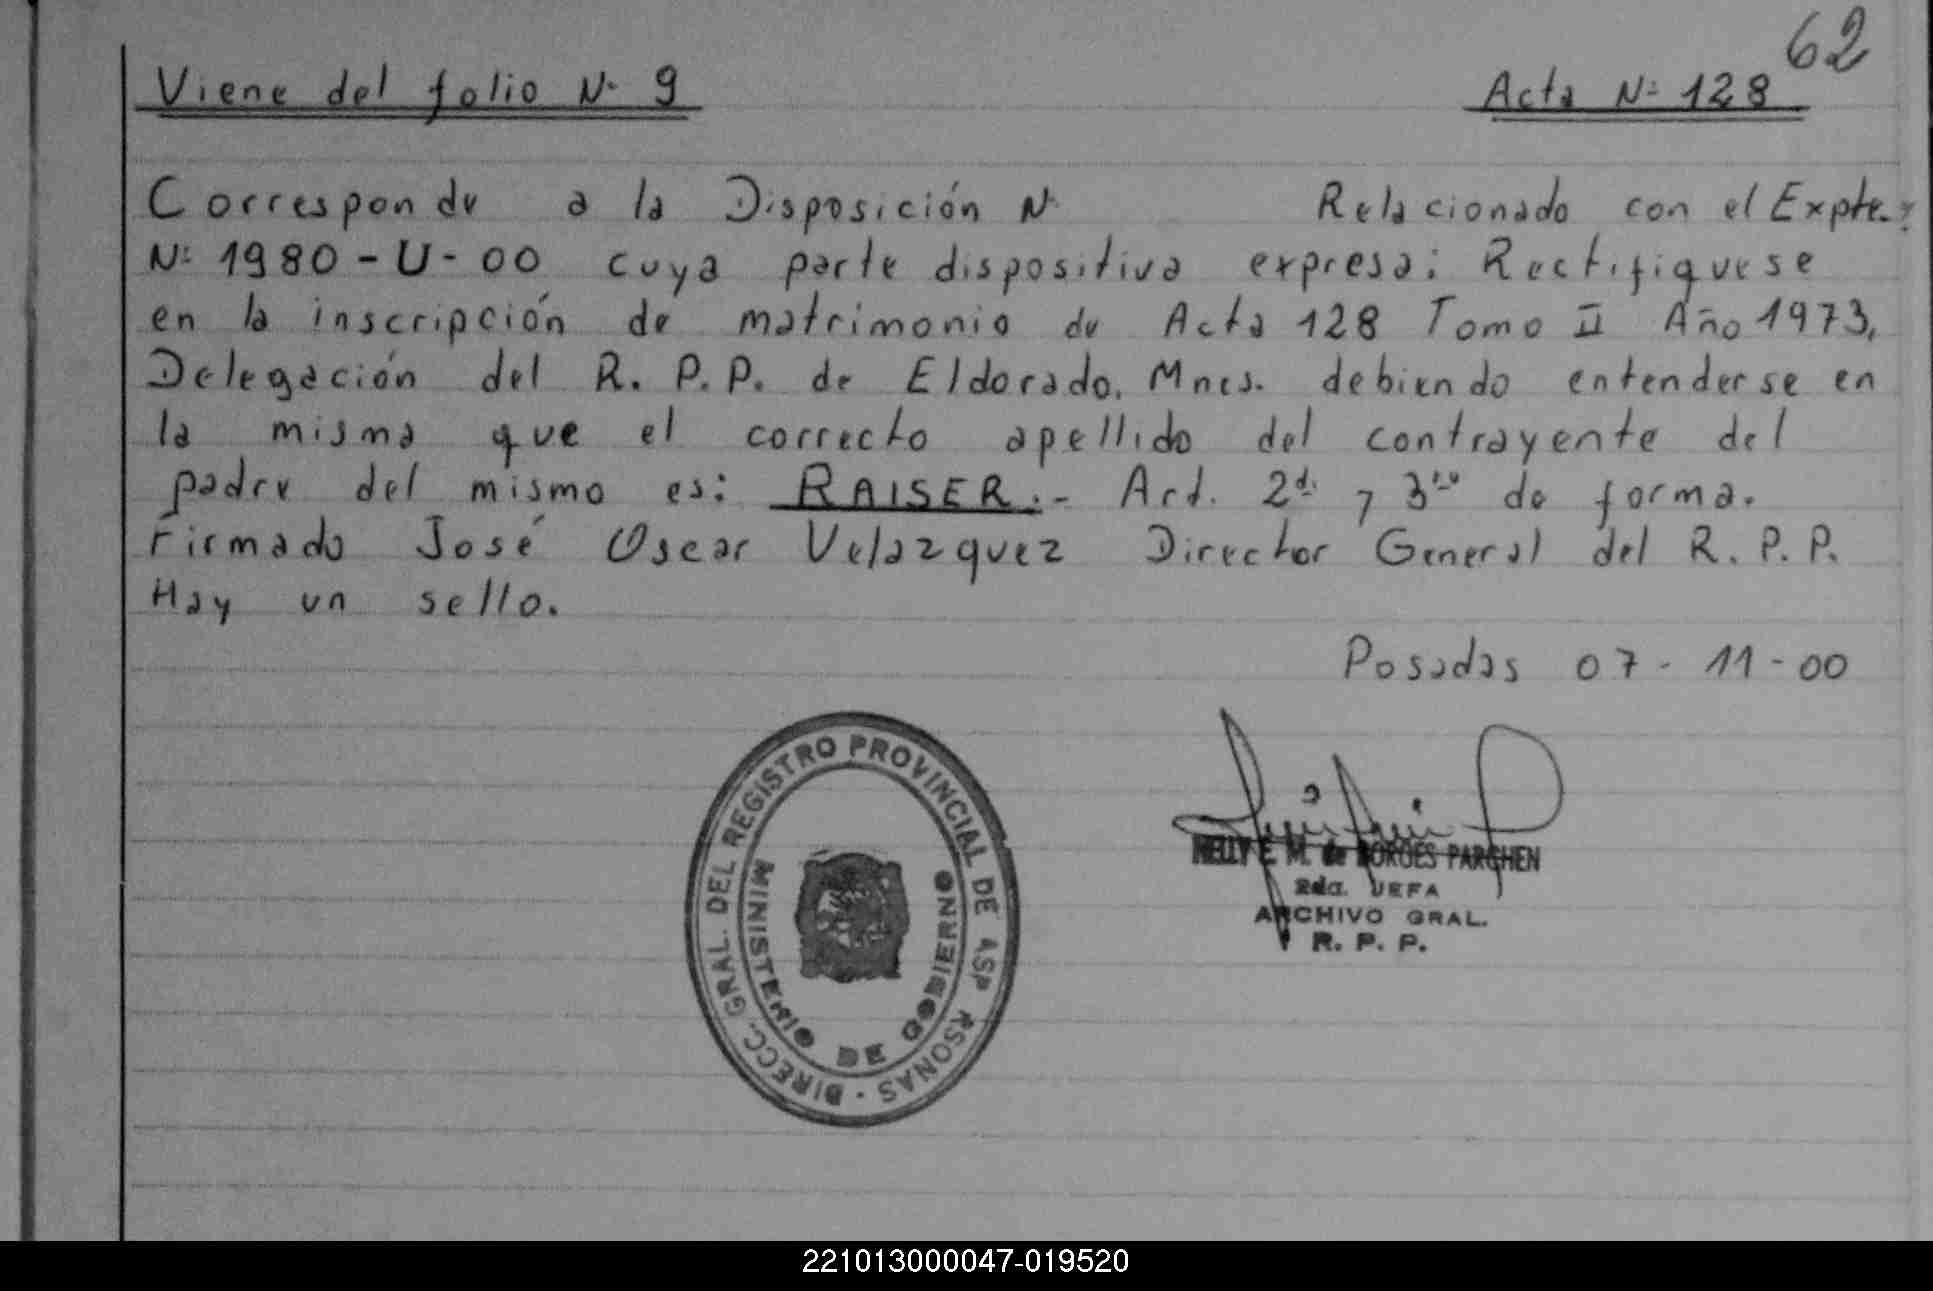 62
Viene del folio N° 9 Acta N° 128
Corresponde a la Disposición N° Relacionado con el Expte.
N° 1980-U-00 cuya parte dispositiva expresa: Rectifiquese
en la inscripción de matrimonio de Acta 128 Tomo II Año 1973,
Delegación del R. P. P. de Eldorado, Mnes. debiendo entenderse en
la misma que el correcto apellido del contrayente del
padre del mismo es: RAISER.- Art. 2do y 3ro de forma.
Firmado José Oscar Velazquez Director General del R. P. P.
Hay un sello.
Posadas 07-11-00
DIRECC. GRAL. DEL REGISTRO PROVINCIAL DE
MINISTERIO DE GOBIERNO
NELLY E. M. de BORGES PARGHEN
2da. JEFA
ARCHIVO GRAL.
R. P. P.
221013000047-019520